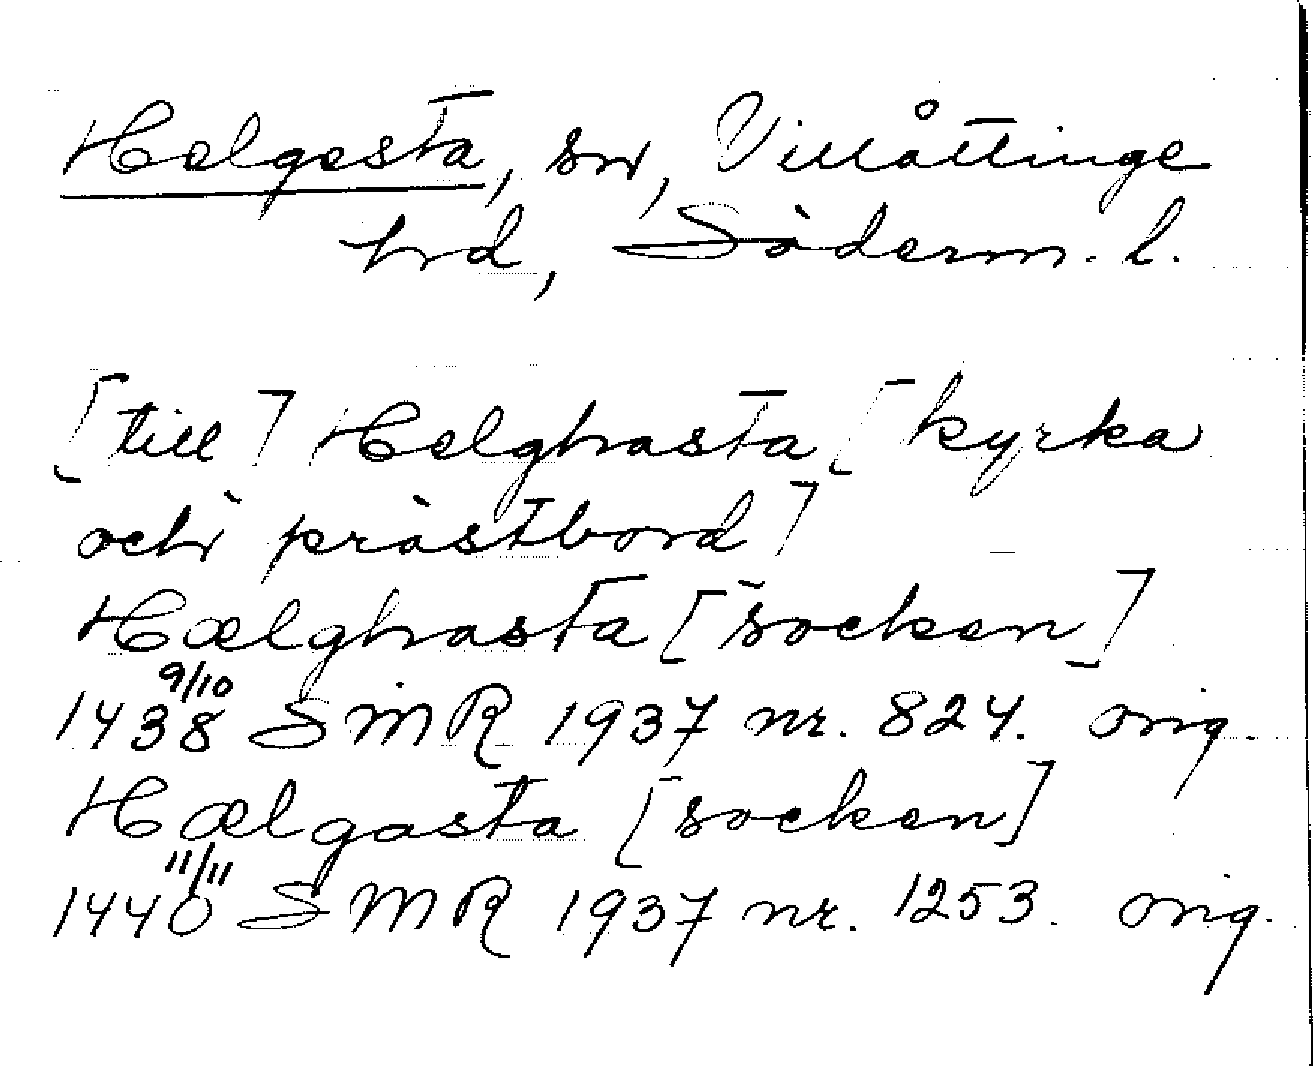 Helgesta, sn, Villåttinge
hd, Söderm. l.
[till] Helghasta [kyrka
och prästbord]
Hælghasta [socken]
1438 9/10 SMR 1937 nr. 824. orig.
Hælgasta [socken]
1440 11/11 SMR 1937 nr. 1253. orig.